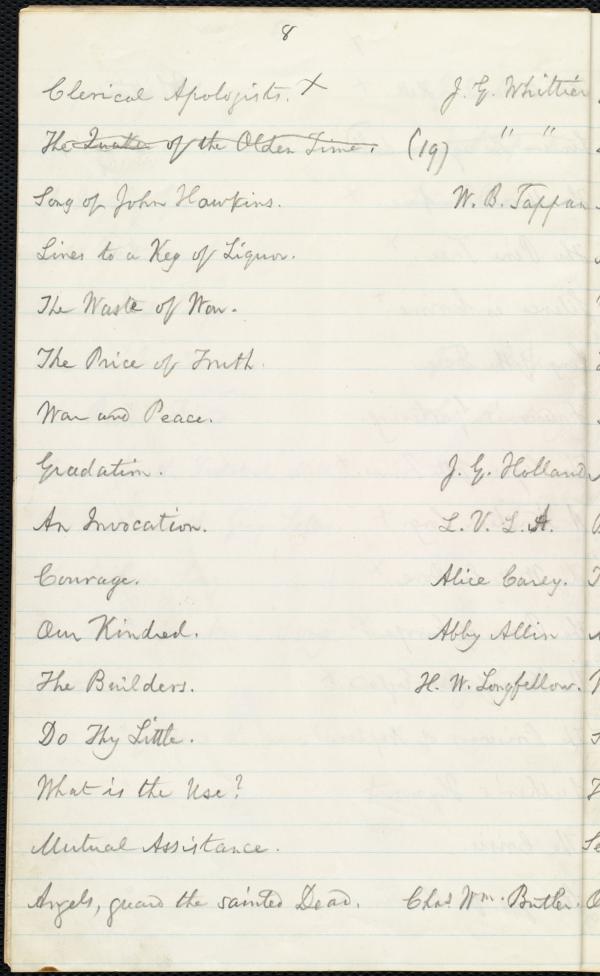 8
Clerical Apologists. X J. G. Whittier
The Quaker of the Olden Time. (19) " "
Song of John Hawkins. W. B. Tappan
Lines to a Keg of Liquor.
The Waste of War.
The Price of Truth.
War and Peace.
Gradation. J. G. Holland
An Invocation. L. V. L. A.
Courage. Alice Carey.
Our Kindred. Abby Allin
The Builders. H. W. Longfellow.
Do Thy Little.
What is the Use?
Mutual Assistance.
Angels, guard the sainted Dead. Chas Wm. Butler.